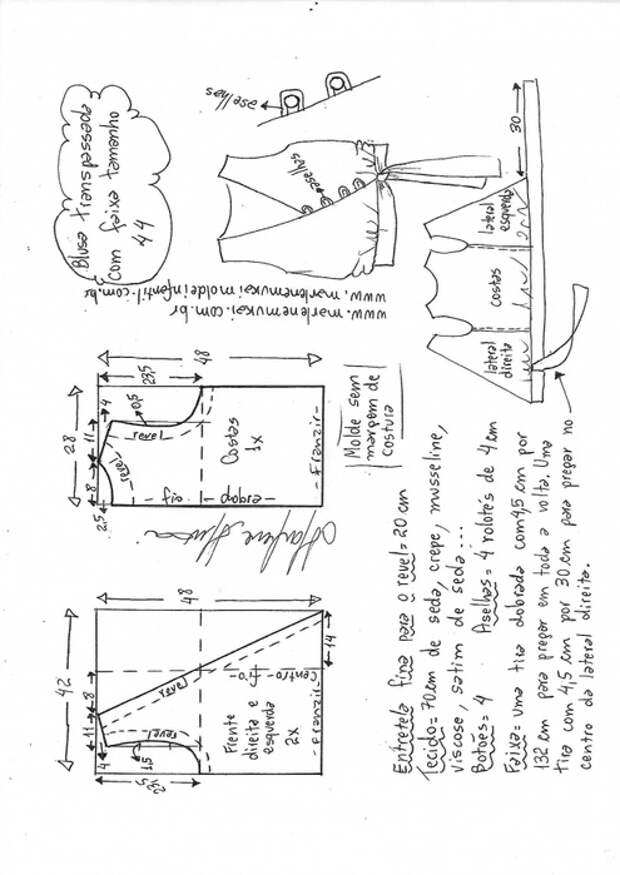 Blusa transpassada
com faixa tamanho
44
aselhas
aselhas
www.marlenemukai.com.br
www.marlenemukaimoldeinfantil.com.br
30
lateral
esquerda
costas
lateral
direita
28
8
11
4
2,5
23,5
48
0,5
revel
revel
Costas
1x
fio
dobra
-Franzir-
Molde sem
margem de
costura
42
11
8
4
23,5
48
1,5
14
revel
revel
Frente
direita e
esquerda
2x
centro-fio-
-Franzir-
Entretela fina para o revel=20cm
Tecido=70cm de seda, crepe, musseline,
viscose, satim de seda...
Botões=4 Aselhas=4 rolotés de 4cm
Faixa=uma tira dobrada com 4,5cm por
132cm para pregar em toda a volta. Uma
tira com 4,5cm por 30cm para pregar no
centro da lateral direita.